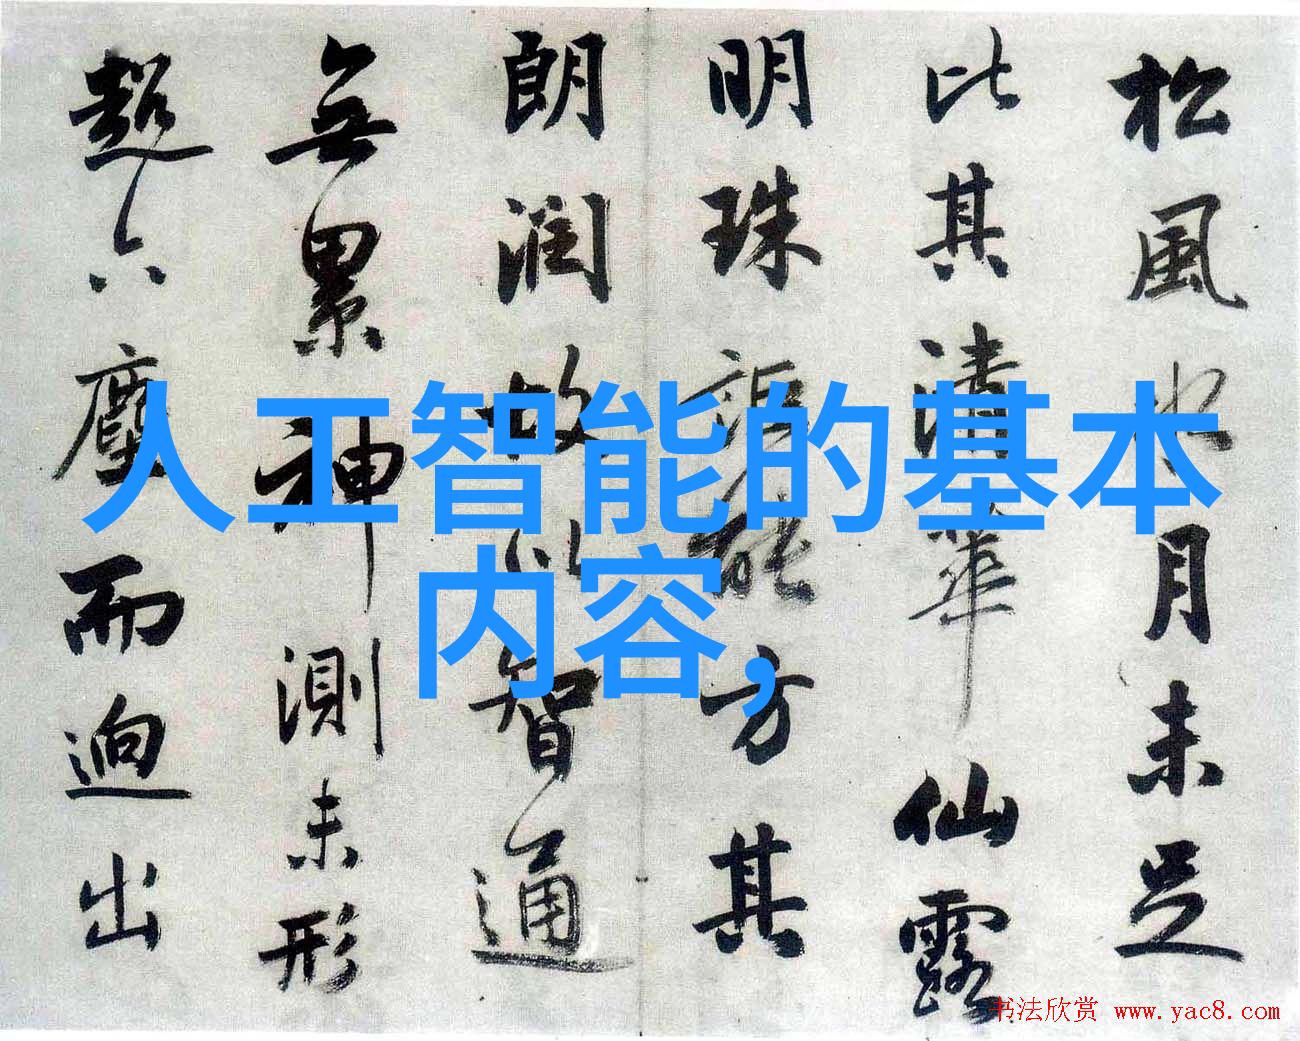 松風水月未足
比其清華仙露
明珠詎能方其
朗潤故以智通
無累神測未形
超六塵而迥出
人工智能的基本
内容，
书法欣赏 www.yac8.com